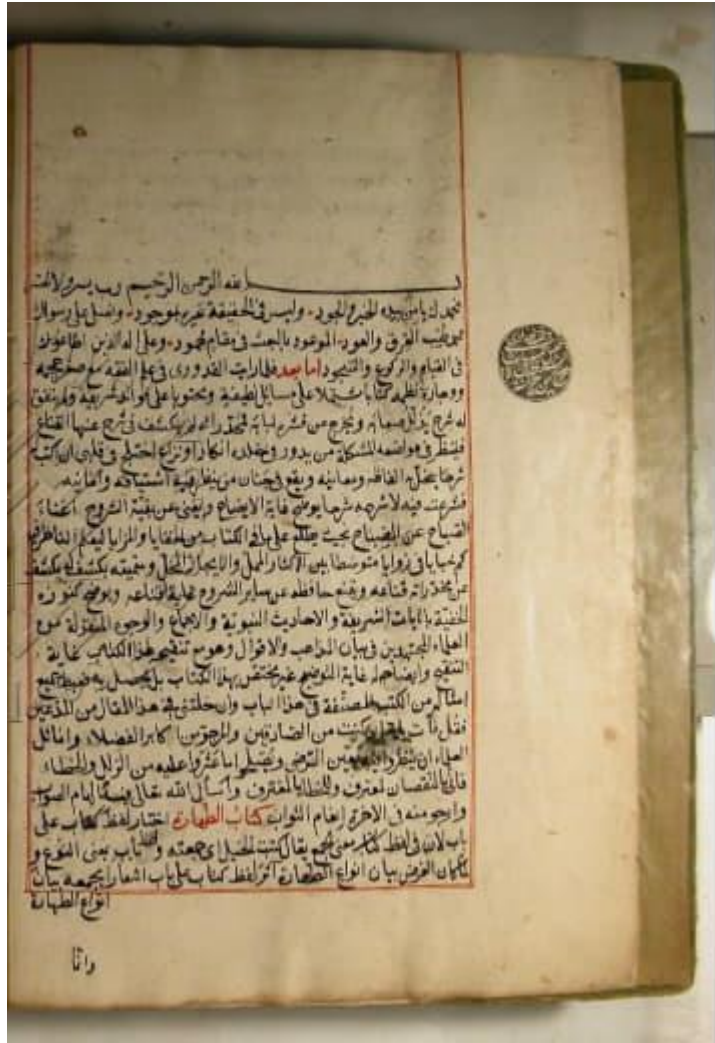 بسم الله الرحمن الرحيم رب يسر ولا تعسر
نحمدك يا من بيده الخير والجود وليس فى الحقيقة غيره بموجود ونصلى على رسولك
محمد طيب العرق والعود الموعود بالبعث فى مقام محمود وعلى اله الذين اطاعوك
فى القيام والركوع والسجود اما بعد فلما رايت القدورى فى علم الفقه مع صغر حجمه
ووجازة نظمه كتابا مشتملا على مسائل لطيفة ومحتويا على فوائد شريفة ولم يتفق
له شرح يذلل صعابه ويخرج عن قشره لبابه مخدراته لم يكشف فى شرح عنها القناع
فينظر فى مواضعه المشكلة من يدور وخلده انكار او نزاع اختلج فى قلبى ان اكتب
شرحا يحل الفاظه ومعانيه
فشرعت فيه لاشرحه شرحا يوضح غاية الايضاح ويغنى عن بقية الشروح اغناء
الصباح عن المصباح بحيث يطلع على ما فى الكتاب من الخفايا والمزايا ليعلم الناظر فيه
كم خبايا فى زوايا متوسطا بين الاكثار الممل والايجاز المخل وسميته بكشف
عن مخدراته قناعه ويقنع حافظه عن سائر الشروح غاية اقناعه ويوضح كنوزه
الخفية بالايات الشريفة والاحاديث النبوية والاجماع والوجوه المنقولة من
العلماء المجتهدين فى بيان المذاهب والاقوال وهو مع تنقيح هذا الكتاب غاية
التنقيح وايضاحه غاية التوضيح غير مختص بهذا الكتاب بل يحصل به ضبط جميع
امثاله من الكتب المصنفة فى هذا الباب وان خلتنى فى هذا المقال من المدعين
فقل فأت به ان كنت من الصادقين والمرجو من اكابر الفضلاء واماثل
العلماء ان ينظروا اليه بعين الرضى ويصلحوا ما عثروا عليه من الزلل والخطاء
فانى بالنقصان لمعترف وللخطايا لمقترف وأسأل الله تعالى الهام الصواب
وارجو منه فى الاخرة انعام الثواب كتاب الطهارة اختار لفظ كتاب على
باب لان فى لفظ كتاب معنى الجمع يقال كتبت الخيل اى جمعته والباب بمعنى النوع و
لما كان الغرض بيان انواع الطهارة اثر لفظ كتاب على باب اشعارا بجمعه بيان
انواع الطهارة
وانا